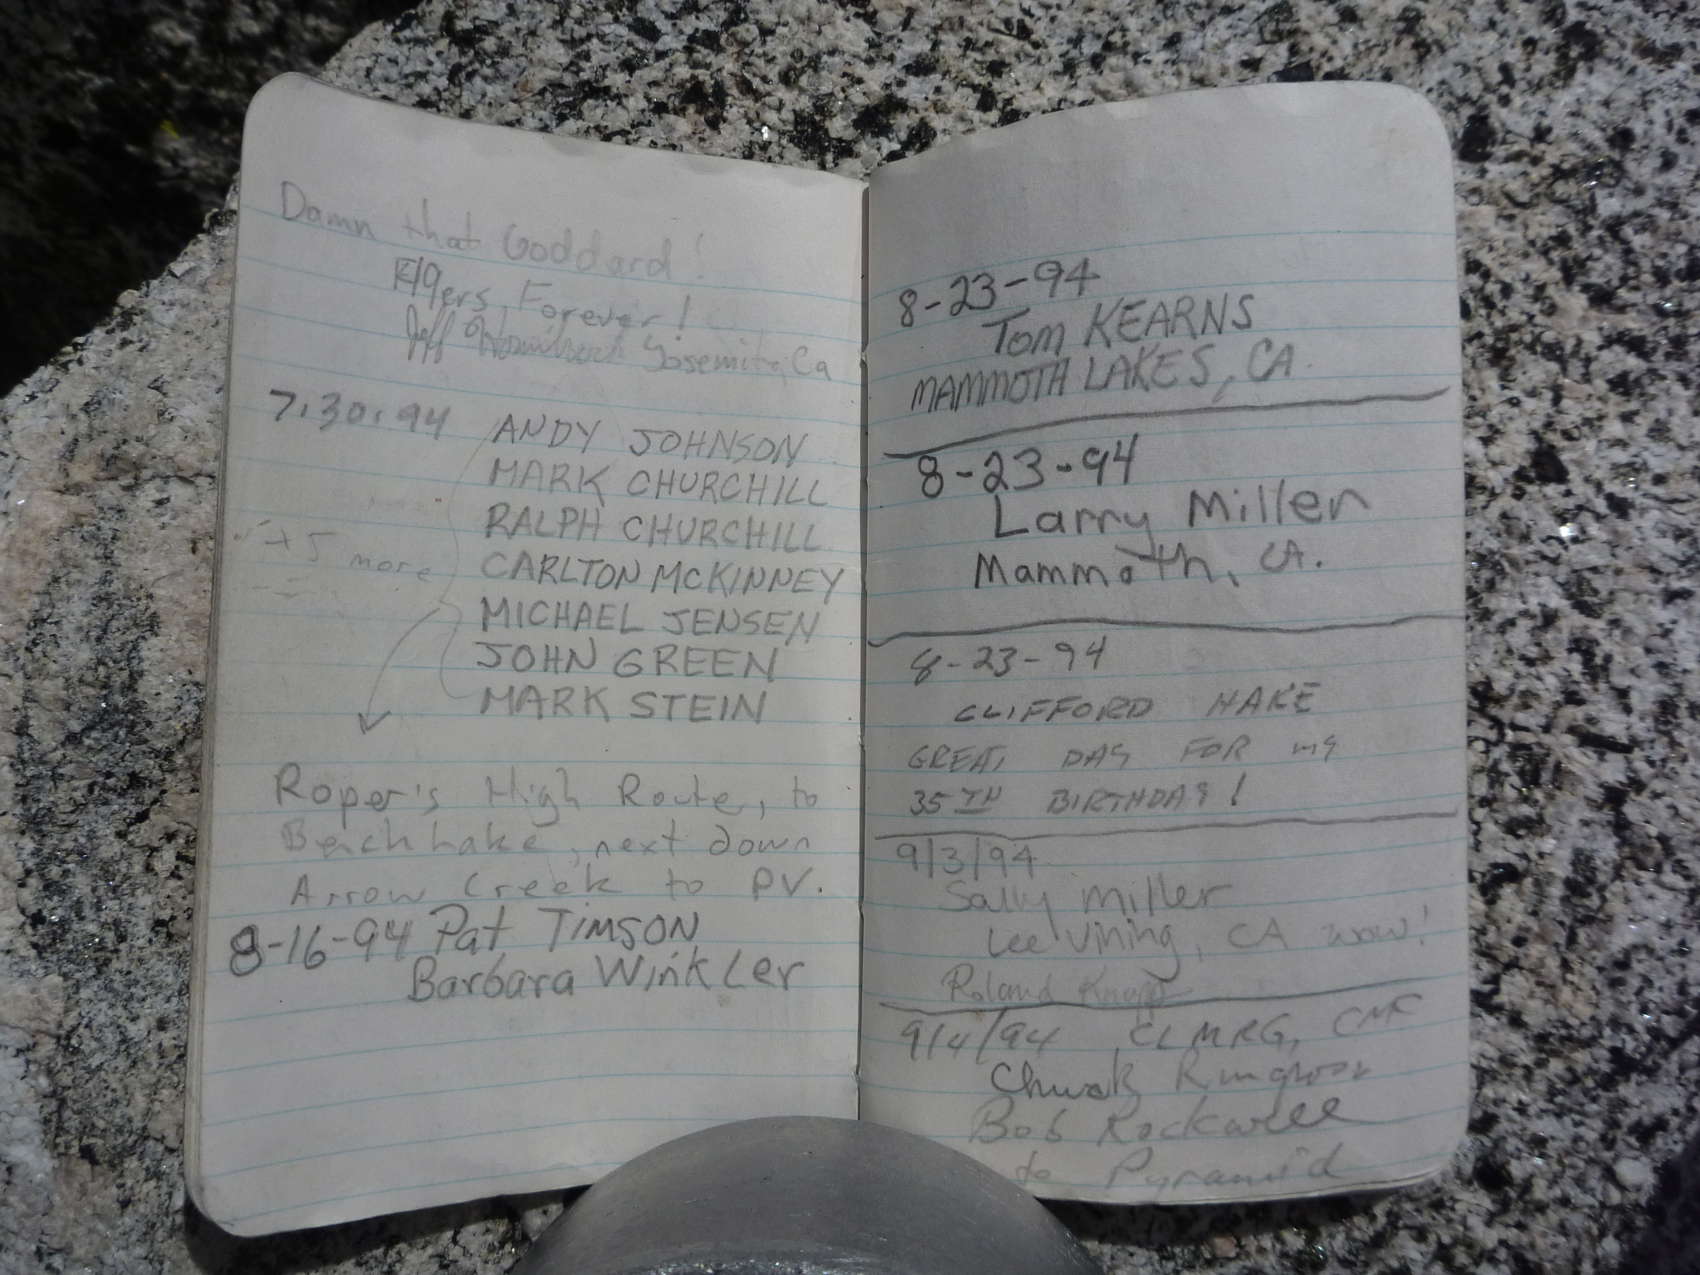 Damn that Goddard!
49ers Forever!
Jeff Yosemite, Ca
7.30.94 ANDY JOHNSON
MARK CHURCHILL
RALPH CHURCHILL
+5 more CARLTON MCKINNEY
MICHAEL JENSEN
JOHN GREEN
MARK STEIN
Roper's High Route, to
Bench Lake, next down
Arrow Creek to PV.
8-16-94 Pat TIMSON
Barbara Winkler
8-23-94
Tom KEARNS
MAMMOTH LAKES, CA.
8-23-94
Larry Miller
Mammoth, CA.
8-23-94
CLIFFORD HAKE
GREAT DAY FOR MY
35TH BIRTHDAY!
9/3/94
Sally Miller
Lee Vining, CA wow!
Roland Knapp
9/4/94 CLMRG, CMC
Chuck
Bob Rockwell
to Pyramid